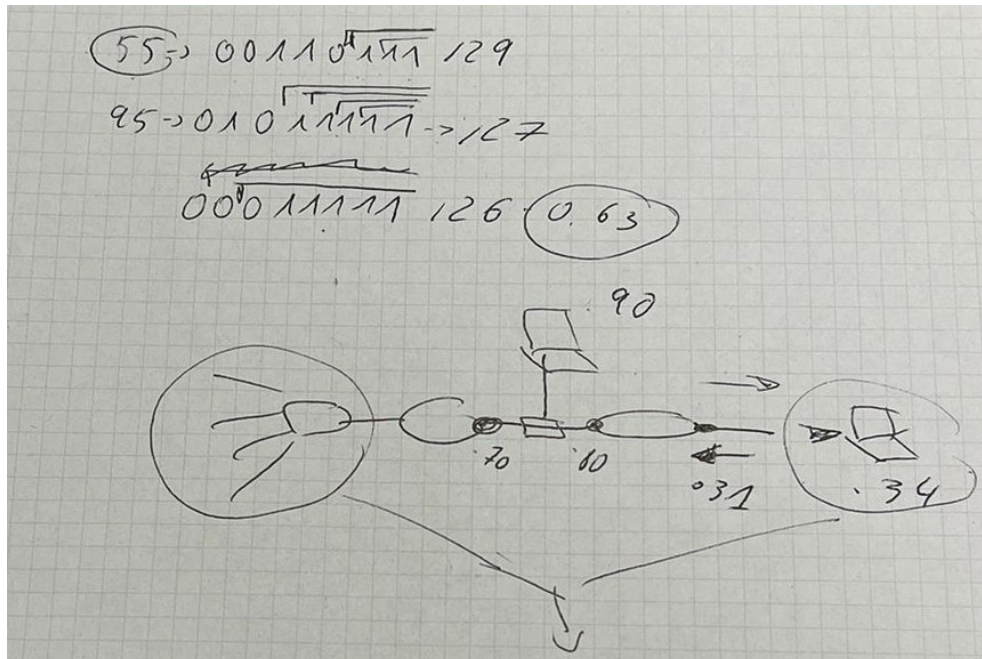 55 → 00110111 /29
95 → 01011111 → /27
00011111 /26 0.63
90
.70 .80
.31 .34